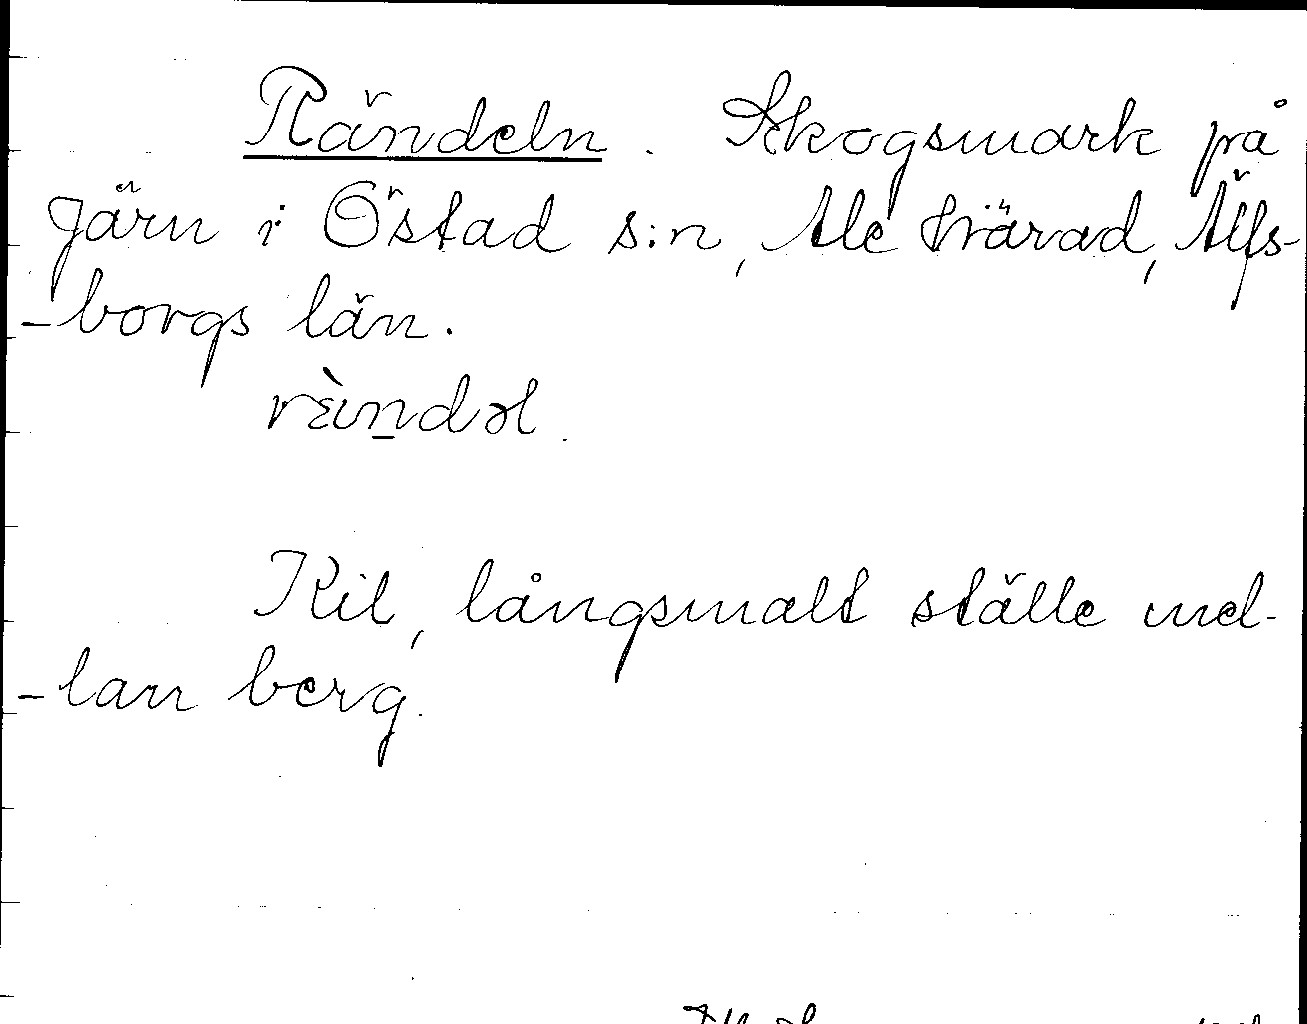 Rändeln. Skogsmark på
Järn i Östad s:n, Ale härad, Älfs-
-borgs län.
rὲn̲dəl.
Kil, långsmalt ställe mel-
-lan berg.